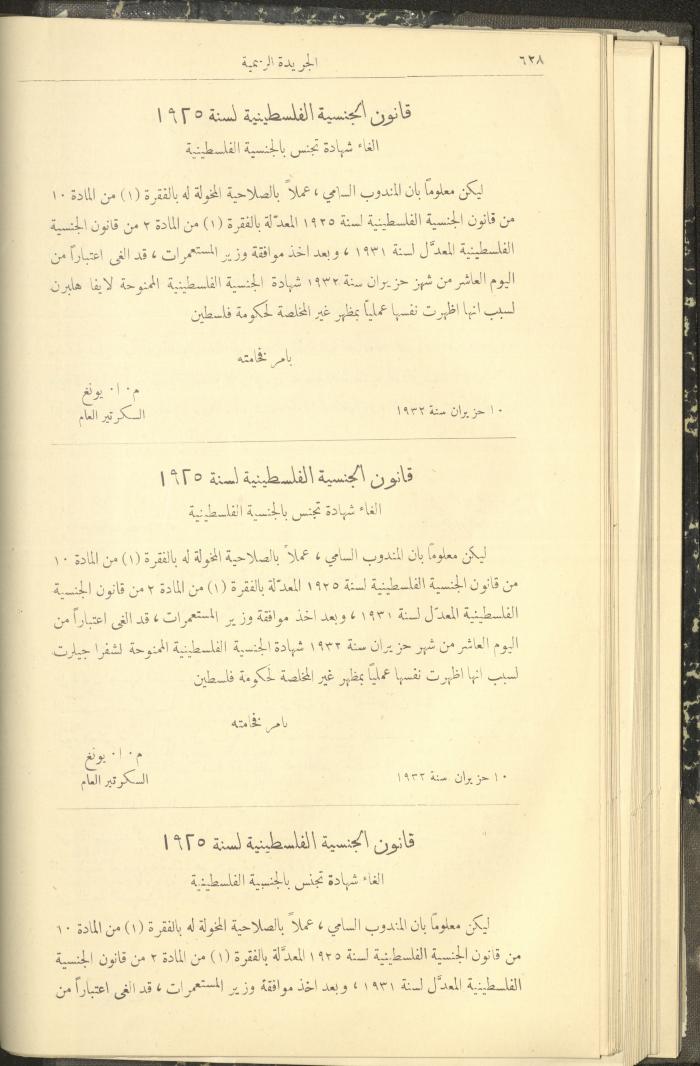 ٦٣٨
الجريدة الرسمية
قانون الجنسية الفلسطينية لسنة ١٩٢٥
الغاء شهادة تجنس بالجنسية الفلسطينية
ليكن معلوماً بان المندوب السامي ، عملاً بالصلاحية المخولة له بالفقرة (١) من المادة ١٠
من قانون الجنسية الفلسطينية لسنة ١٩٢٥ المعدّلة بالفقرة (١) من المادة ٢ من قانون الجنسية
الفلسطينية المعدَّل لسنة ١٩٣١ ، وبعد اخذ موافقة وزير المستعمرات ، قد الغى اعتباراً من
اليوم العاشر من شهر حزيران سنة ١٩٣٢ شهادة الجنسية الفلسطينية الممنوحة لايفا هلبرن
لسبب انها اظهرت نفسها عملياً بمظهر غير المخلصة لحكومة فلسطين
بامر فخامته
م٠ ا٠ يونغ
١٠ حزيران سنة ١٩٣٢
السكرتير العام
قانون الجنسية الفلسطينية لسنة ١٩٢٥
الغاء شهادة تجنس بالجنسية الفلسطينية
ليكن معلوماً بان المندوب السامي ، عملاً بالصلاحية المخولة له بالفقرة (١) من المادة ١٠
من قانون الجنسية الفلسطينية لسنة ١٩٢٥ المعدّلة بالفقرة (١) من المادة ٢ من قانون الجنسية
الفلسطينية المعدّل لسنة ١٩٣١ ، وبعد اخذ موافقة وزير المستعمرات ، قد الغى اعتباراً من
اليوم العاشر من شهر حزيران سنة ١٩٣٢ شهادة الجنسية الفلسطينية الممنوحة لشفرا جيلرت
لسبب انها اظهرت نفسها عملياً بمظهر غير المخلصة لحكومة فلسطين
بامر فخامته
م٠ ا٠ يونغ
١٠ حزيران سنة ١٩٣٢
السكرتير العام
قانون الجنسية الفلسطينية لسنة ١٩٢٥
الغاء شهادة تجنس بالجنسية الفلسطينية
ليكن معلوماً بان المندوب السامي ، عملاً بالصلاحية المخولة له بالفقرة (١) من المادة ١٠
من قانون الجنسية الفلسطينية لسنة ١٩٢٥ المعدَّلة بالفقرة (١) من المادة ٢ من قانون الجنسية
الفلسطينية المعدَّل لسنة ١٩٣١ ، وبعد اخذ موافقة وزير المستعمرات ، قد الغى اعتباراً من